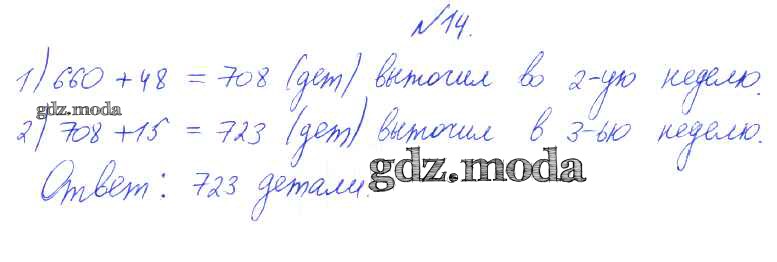 №14.
1) 660 + 48 = 708 (дет) выточил во 2-ую неделю.
gdz.moda
2) 708 + 15 = 723 (дет) выточил в 3-ью неделю.
Ответ: 723 детали.
gdz.moda